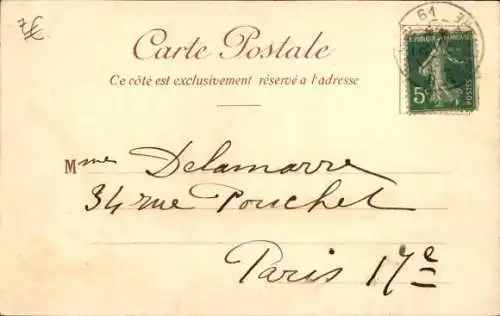 7€
Carte Postale
Ce côté est exclusivement réservé a l'adresse
Mme Delamarre
34 rue Pouchet
Paris 17e
61
FRANÇAISE
5c
POSTES